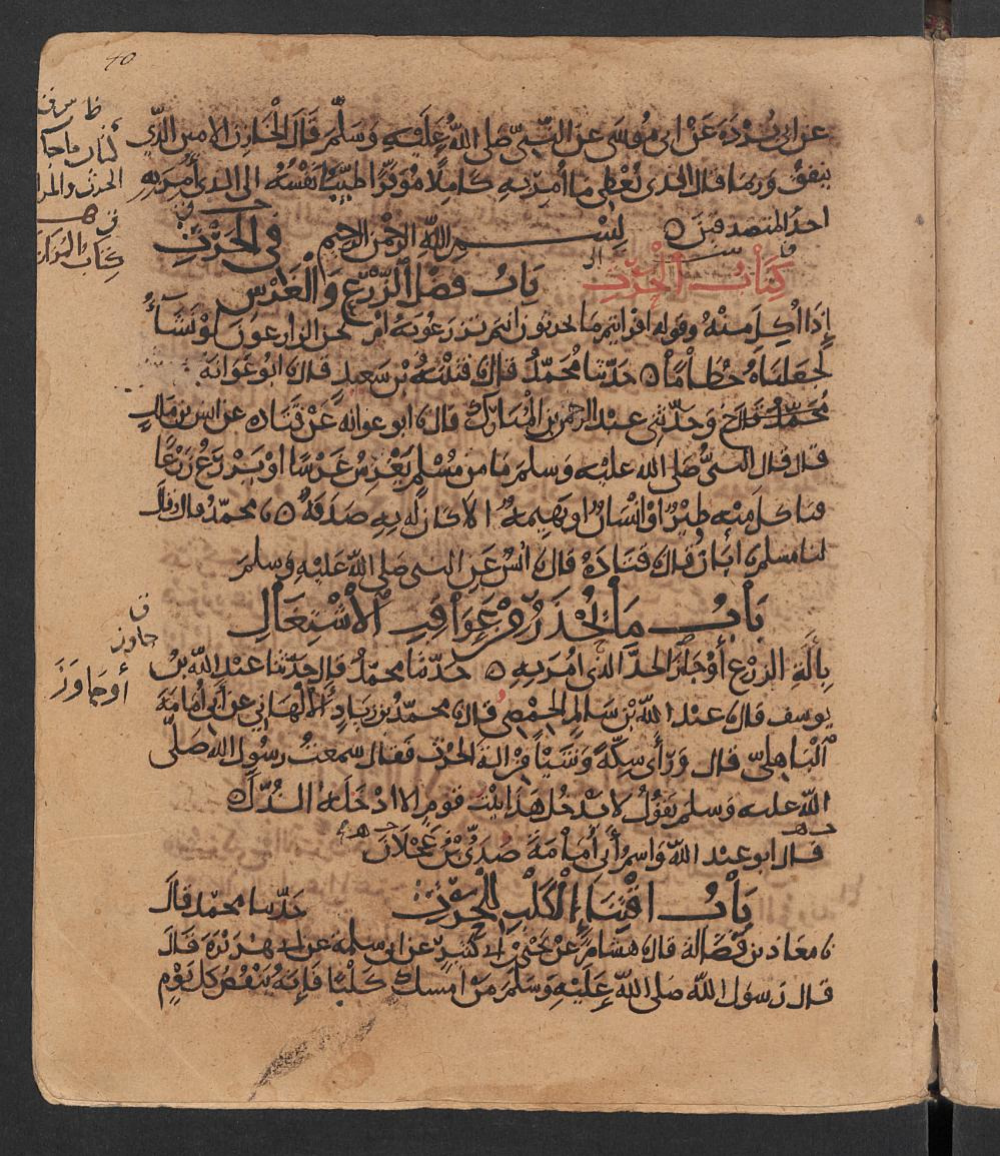 40
عن ابى بُرْدَةَ عَنْ ابى مُوسَى عن النَّبِىّ صلى اللهُ عَلَيْهِ وَسَلَّمَ قَالَ الْخَازِن الامين الَّذِي
ينفق وربما قال الذى يُعْطِى ما أُمِرَ بِهِ كَامِلًا مُوَفَّرًا طيبٌ نَفْسُهُ الى الذى أُمِرَ بِهِ
احدُ المتصدقين
بِسْمِ اللهِ الرَّحْمٰن الرحيم
فى الحَرْثِ
كتابُ الْحَرْثِ
بَابُ فضْل الزَّرْعِ وَالْغَرْسِ
إِذَا أُكِلَ مِنْهُ وقوله افرايتم ما تحرثون اانتم تزرعُونَهُ امْ نحن الزارعون لَوْ نَشَاءُ
لجَعَلْنَاهُ حُطَامًا حَدَّثَنَا مُحَمَّدٌ قال قُتَيْبَةُ بْن سَعِيدٍ قال ابُو عَوَانَةَ
مُحَمَّدٌ قال ح وَحَدَّثَنِى عبد الرحمن بن الْمُبَارَك قال ابو عوانة عَنْ قَتَادة عن انس بن مالكٍ
قال قال النبىُّ صَلى الله عليه وسلم مَا من مُسْلِمٍ يَغْرِسُ غَرْسًا اوْ يَزْرَعُ زَرْعًا
فياكل مِنْه طَيْرٌ اوْ انْسَانٌ او بَهِيمةٌ الا كان له بِهِ صَدَقَةٌ محمّدٌ قال وقال
لنا مسلم أبَان قال قتادَةُ قال أنسٌ عَنِ النبى صَلى اللهُ عَلَيْهِ وسلم
بَابُ مَا يُحْذَرُ مِنْ عَوَاقِبِ الْاشْتِغَالِ
بِالَةِ الزرْعِ أوْ جَازَ الحدّ الذى امُرَ بِهِ حَدّثَنَا محمّدٌ قال حدّثنا عبد الله بْن
يوسف قال عبد الله بْن سَالِمٍ الحِمْصِيُّ قال محمّد بن زيادٍ الْأَلْهَاني عن أَبى أُمَامَةَ
الْبَاهِلِيّ قال وَرَأى سِكَّةً وَشَيْئًا مِنْ الة الحرْث فَقال سَمعتُ رسُولَ الله صَلَّى
الله عليه وسلم يَقُولُ لا يَدْخُل هَذَا بَيْتَ قومٍ الا ادْخلَهُ الذُّلَّ
قال ابو عبد اللهِ وَاسْمُ أَبِى أُمَامَةَ صُدَىُّ بْنُ عَجْلَانَ
بَابُ اقْتِنَاءِ الْكَلْبِ لِلْحَرْثِ حَدّثنا محمّد قال
معاذ بن فَضَالَة قال هشَامٌ عَنْ يَحْيَى بْن ابى كثيرٍ عن ابى سلمة عن ابى هُرَيْرَةَ قال
قال رَسوُلُ اللهِ صلى اللهُ عَلَيْهِ وَسَلَّمَ مَنْ امسك كَلْبًا فَإِنَهُ يَنْقُصُ كل يَوْمٍ
كتاب ما جا
الحرث والمزا
فى
كتاب المزار
جاوز
أو جَاوَزَ